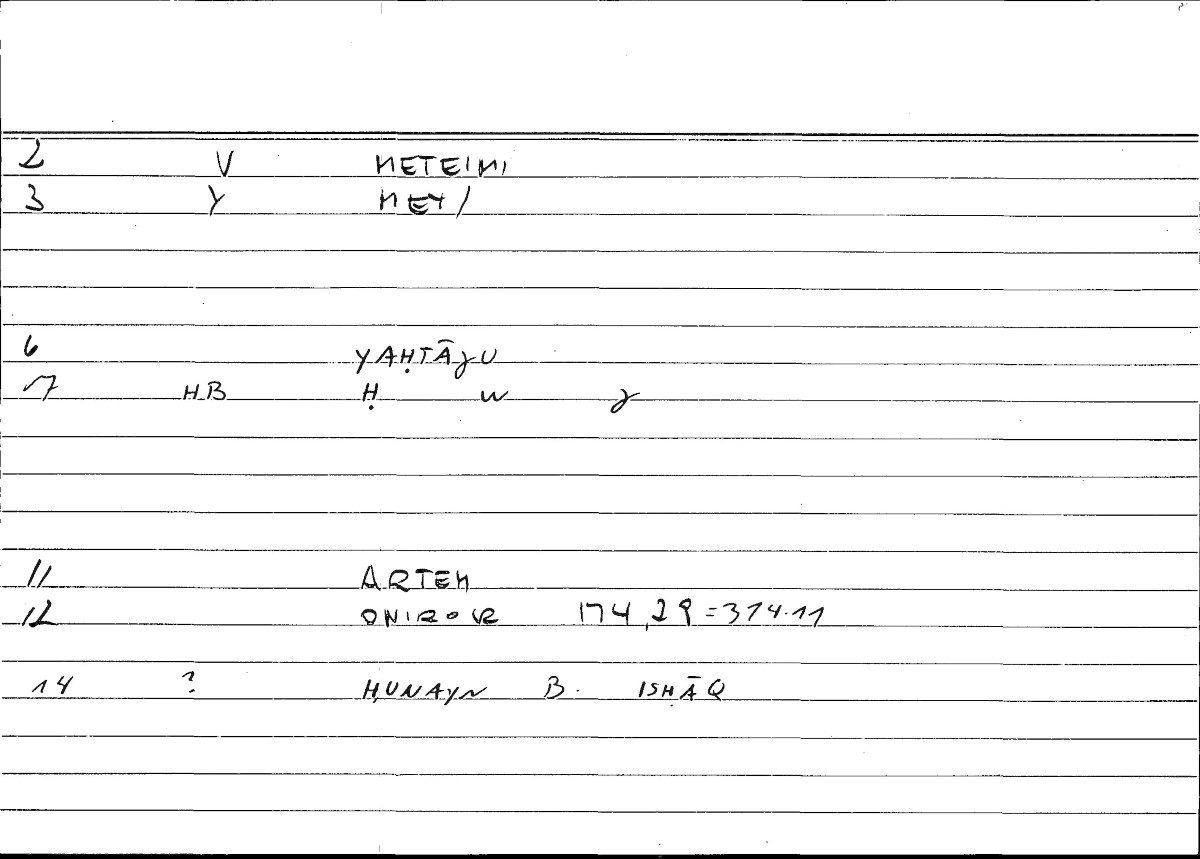 2 V METEIMI
3 Y MET/
6 YAḤTĀJU
7 HB Ḥ W J
11 ARTEM
12 ONIROCR 174,29=374.11
14 ? ḤUNAYN B. ISḤĀQ